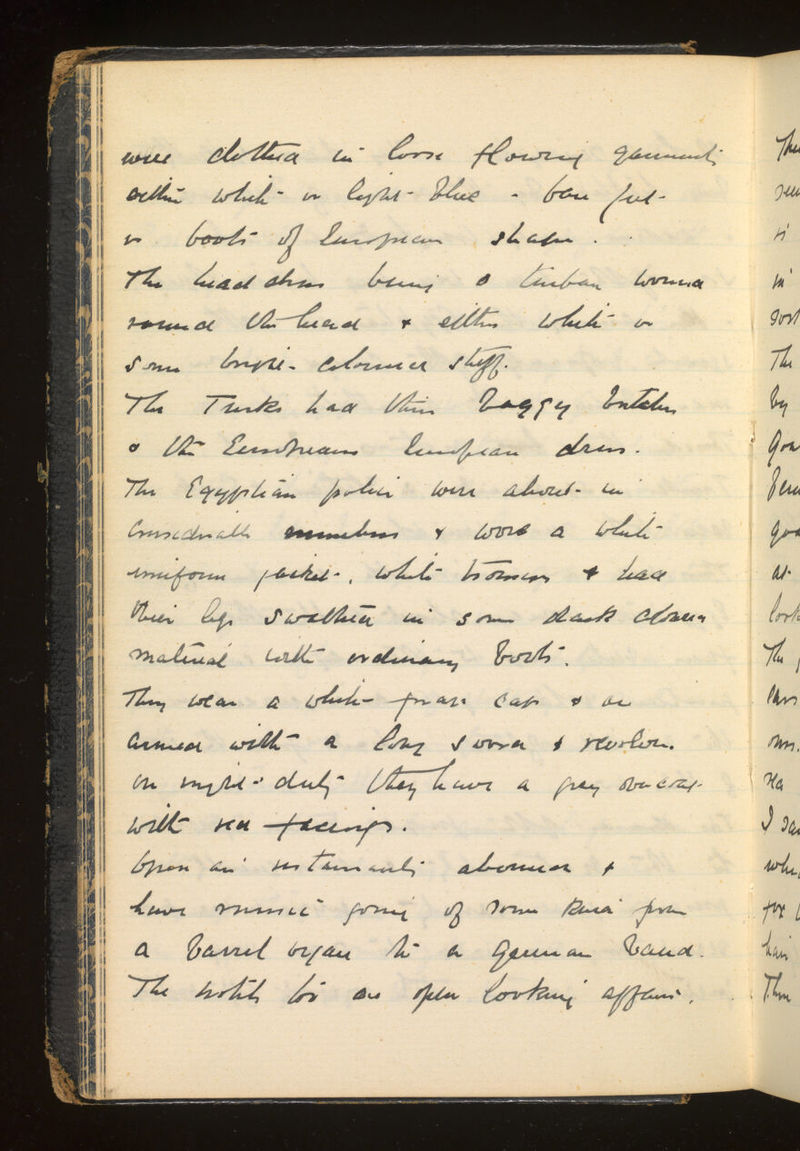 were clothed in loose flowing garments
either white or light blue - bare feet
or boots of European shape.
The head dress being a turban wound
round the head & either white or
some bright coloured stuff.
The Turks had their baggy
& the Europeans European dress.
The Egyptian police were about in
considerable numbers & wore a white
uniform jacket, white trousers & had
their legs swathed in some dark
material with ordinary boots.
They wear a white cap & are
armed with a long sword & revolver.
On night duty they have a grey overcoat
with red facings.
Open air restaurants abound &
have music going of some kind from
a barrel organ to a German band.
The hotels too are open looking affairs.
The
is
in
The
by
at
look
The
I saw
hair